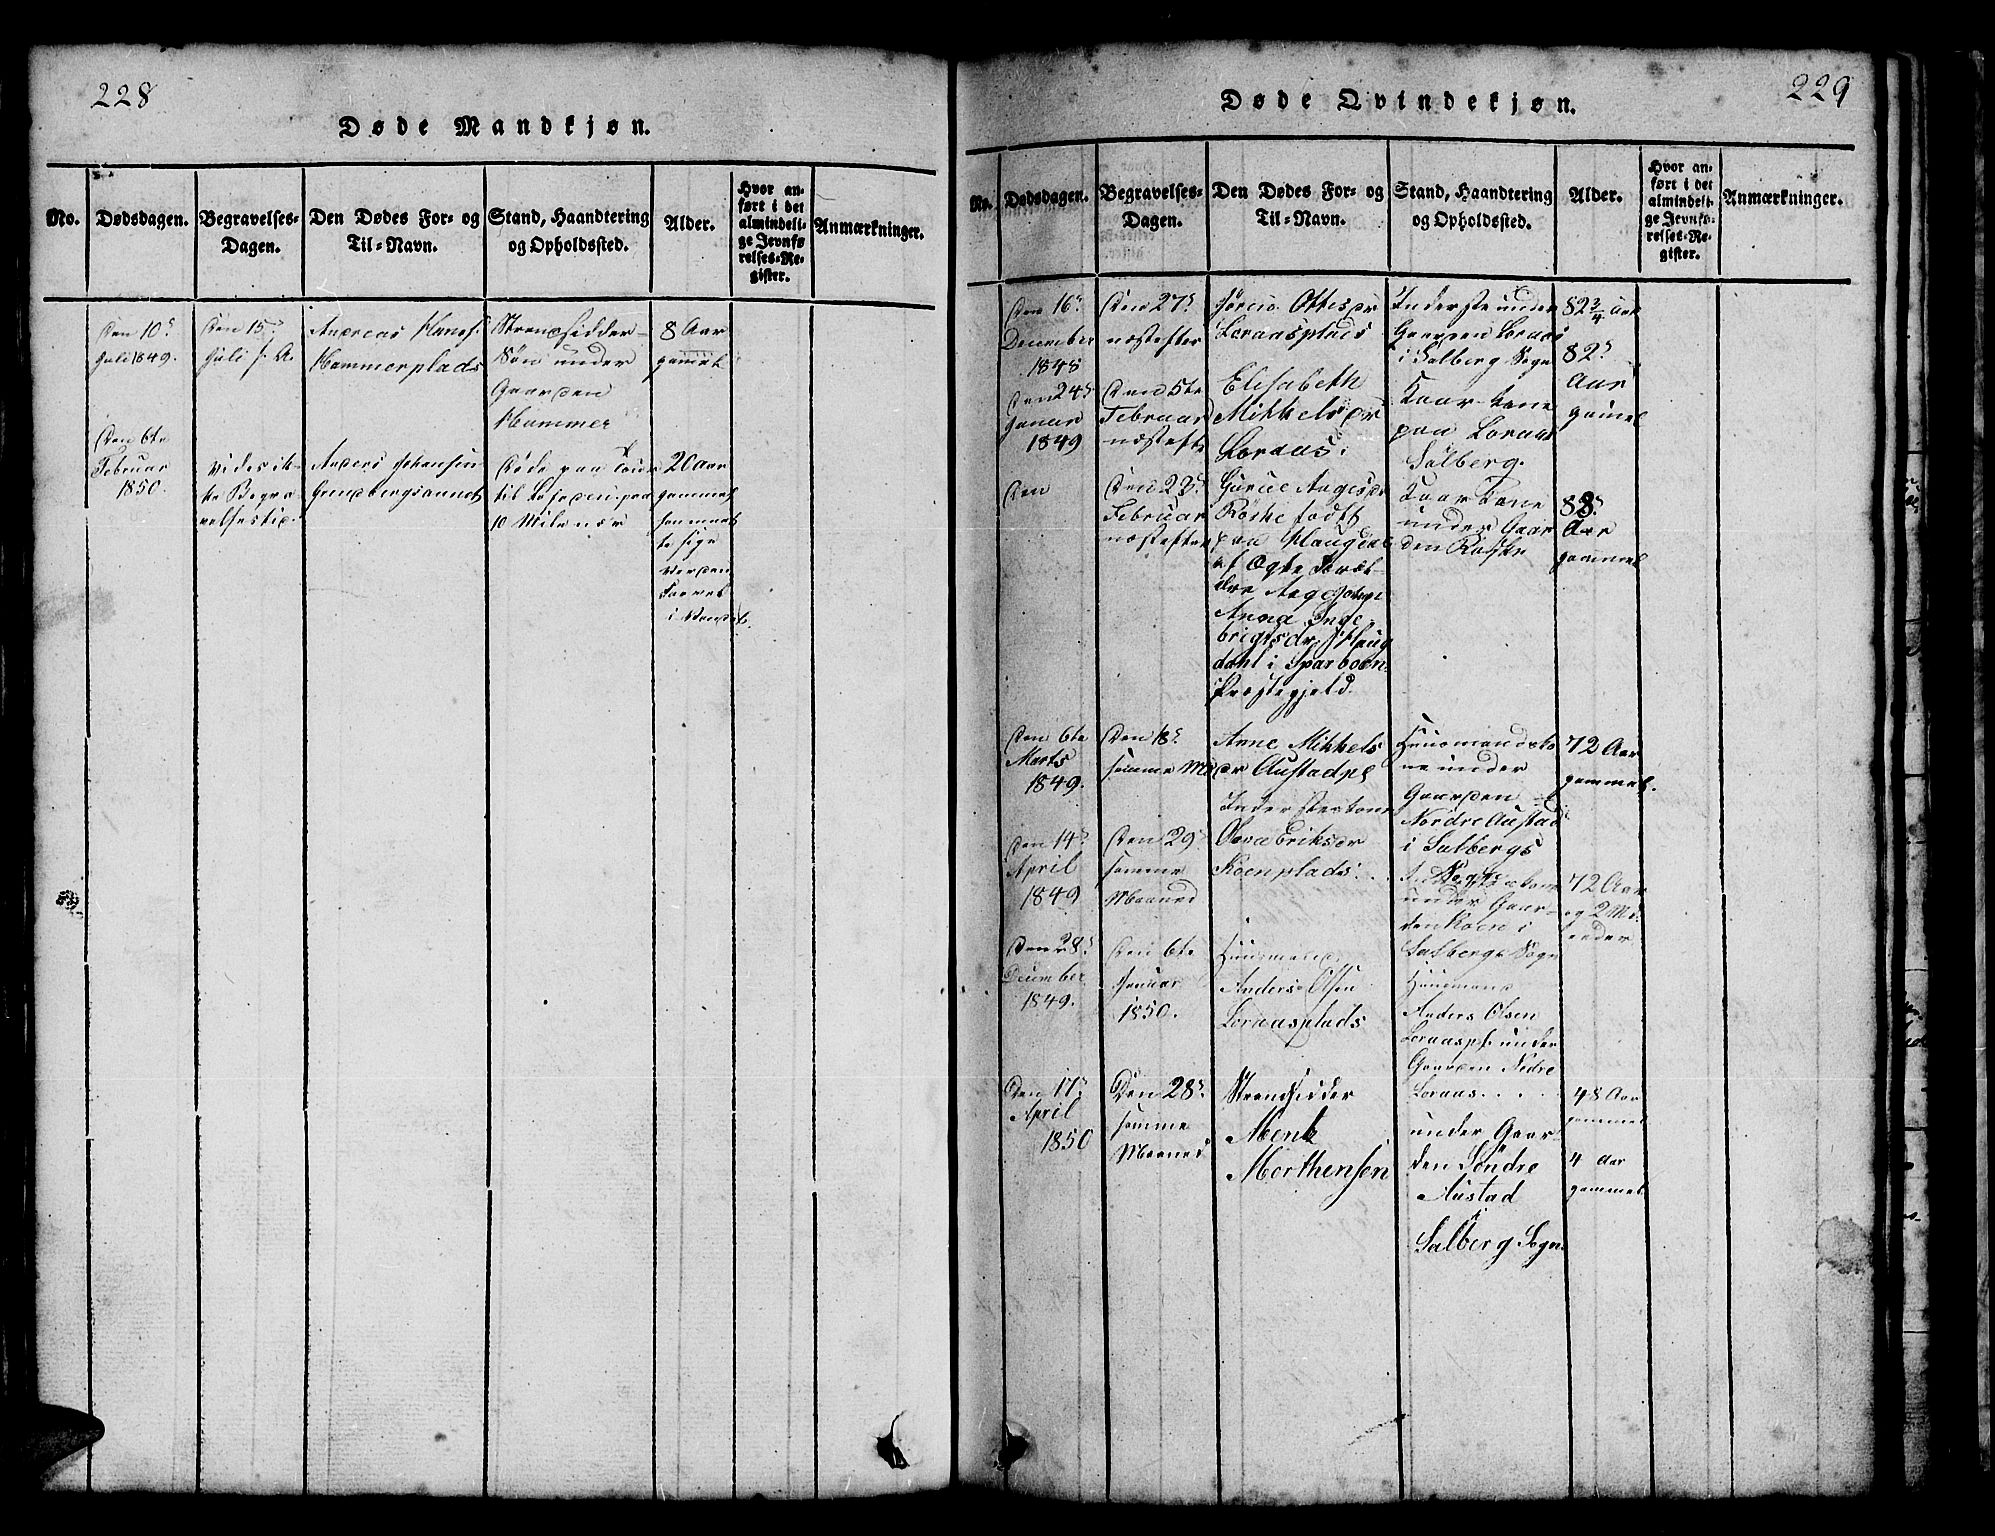 228
Døde Mandkjøn.
No.
Dødsdagen.
Begravelses-
Dagen.
Den Dødes For- og
Til-Navn.
Stand, Haandtering
og Opholdssted.
Alder.
Hvor an-
ført i det
almindeli-
ge Jevnfø
relses-Re-
gister.
Anmærkninger.
Den 10de
Juli 1849.
Den 15
Juli s. A
Andreas Hans.
Hammerplads
Strandsidder
Søn under
Gaarden
Hammer
8 Aar
gamel
Den 6te
Februar
1850.
Anders Johansen
Grundbergsaunet
Døde paa
10 Mile
20 Aar
gammel
229
Døde Qvindekjøn.
No.
Dødsdagen.
Begravelses-
Dagen.
Den Dødes For- og
Til-Navn.
Stand, Haandtering
og Opholdssted.
Alder.
Hvor an-
ført i det
almindeli-
ge Jevnfø-
relses-Re-
gister.
Anmærkninger.
Den 16de
December
1848
Den 27de
næstefter
Ottesdr
Loraasplads
Inderste under
Gaarden Loraas
i Salberg Sogn
82 3/4 Aar
Den 24de
Januar
1849
Den 5te
Februar
næstefter
Elisabeth
Mikkelsdr
Loraas
Kaarkone
paa Loraas
Salberg.
82
Aar
gamel
Den
Den 23de
Februar
næstefter
Aagesdr
Røske født
paa Haugdal
af Ægte Foræl-
dre Aage
Anna Inge
brigtsdr Haug
dahl i Sparboen
Præstegjeld.
Kaar Kone
under Gaar
den Røske
88
Aar
gammel
Den 6te
Marts
1849.
Den 18de
samme Md
Anne Mikkels
dr Austadpl
Huusmandsko
ne under
Gaarden
Nordre Austad
i Salbergs
Sogn
72 Aar
gammel.
Den 14de
April
1849
Den 29
samme
Maaned
Inderstekone
Eriksdr
Koenplads.
under Gaar-
den Koen i
Salbergs Sogn
72 Aar
og 2 M
Den 28de
December
1849.
Den 6te
Januar
1850.
Huusmand
Anders Olsen
Loraasplads
Huusmand
Anders Olsen
Loraaspl. under
Gaarden Nedre
Loraas
48 Aar
gammel
Den 17de
April
1850
Den 28de
samme
Maaned
Strandsidder
Ment
Morthensen
under Gaar-
den Søndre
Austad
i
Salberg Sogn.
4 Aar
gammel